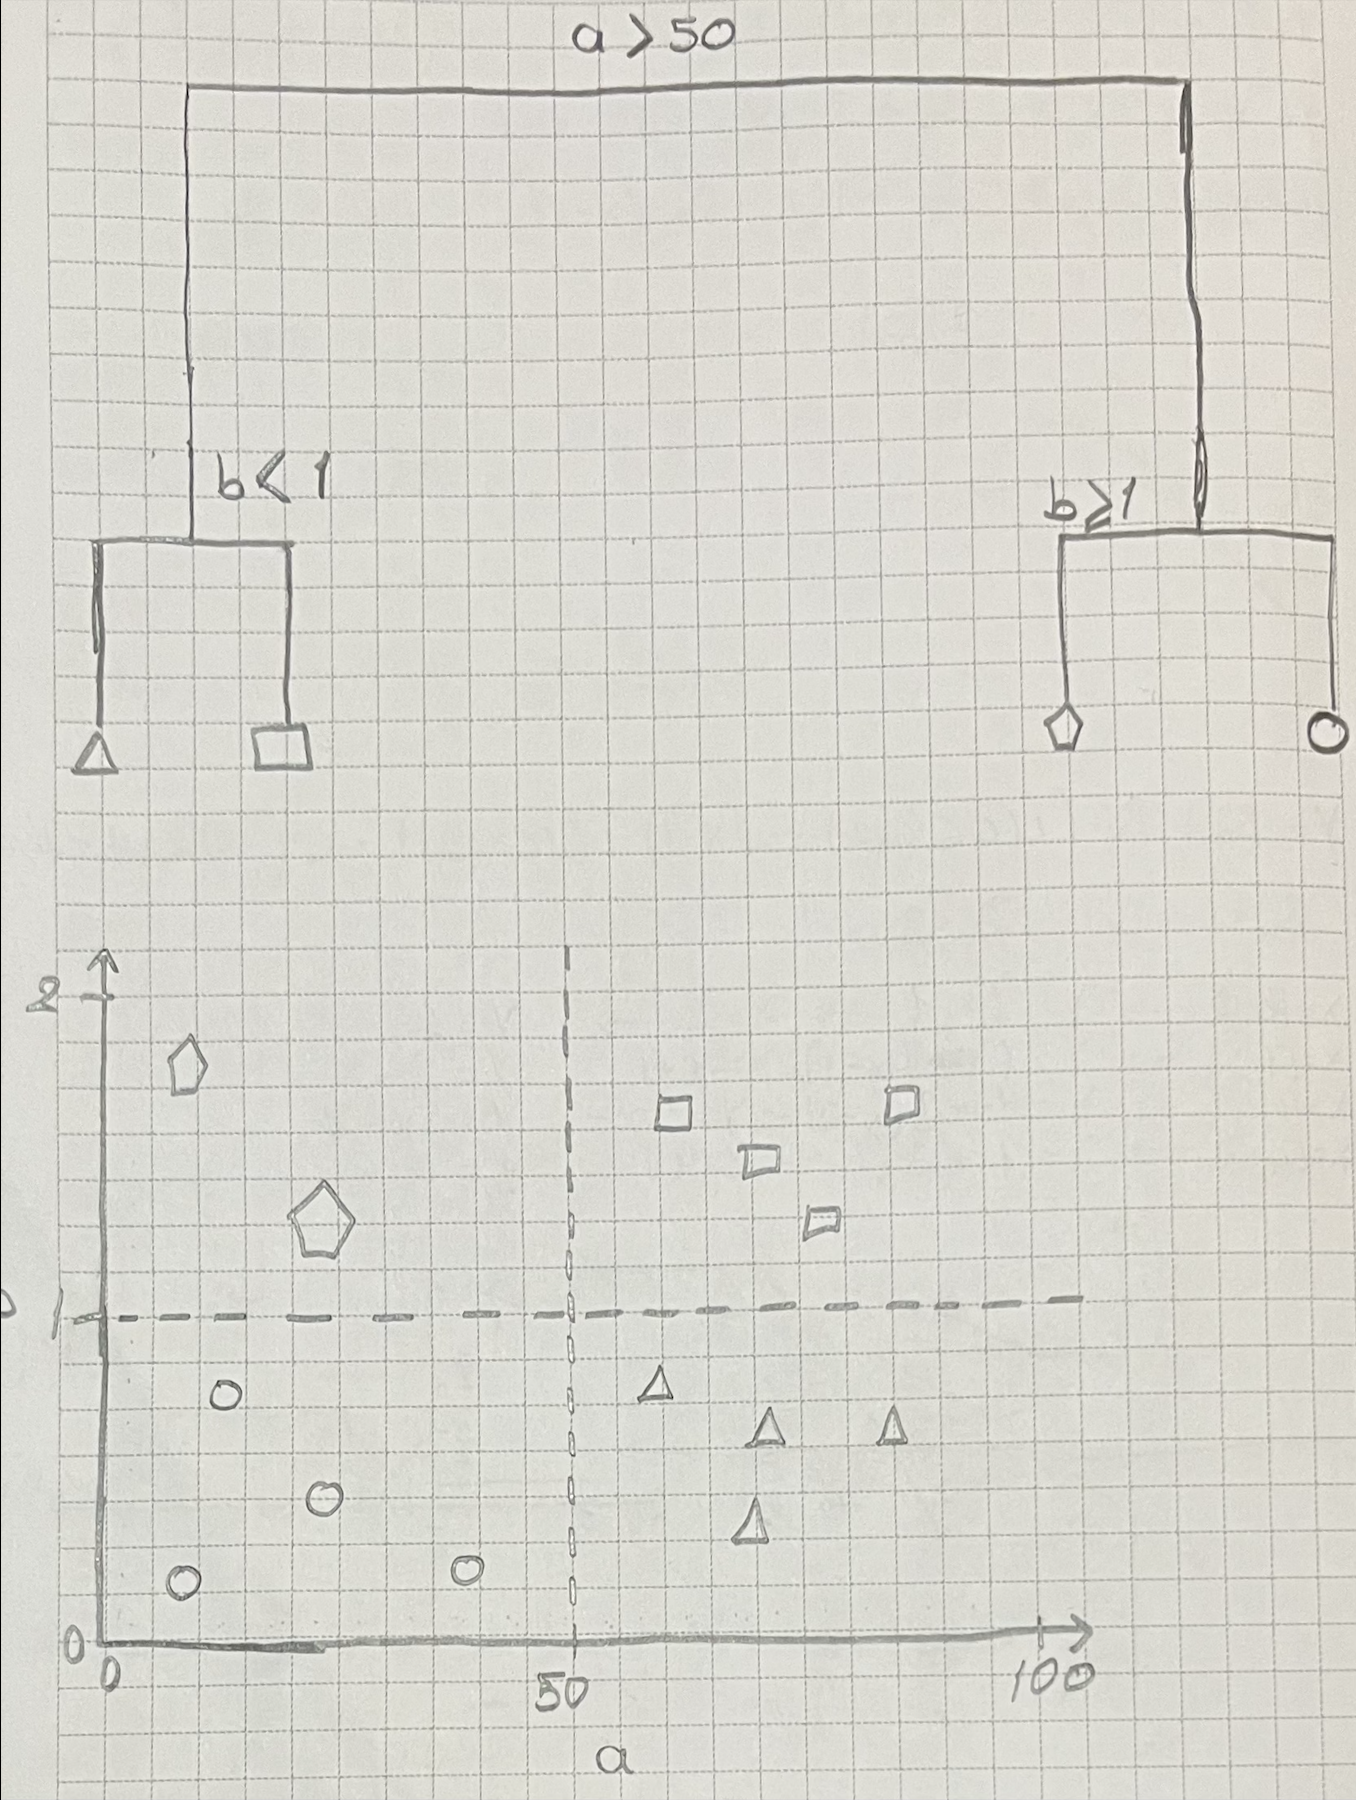 a > 50
b < 1
b ≥ 1
2
1
0
0
50
100
a